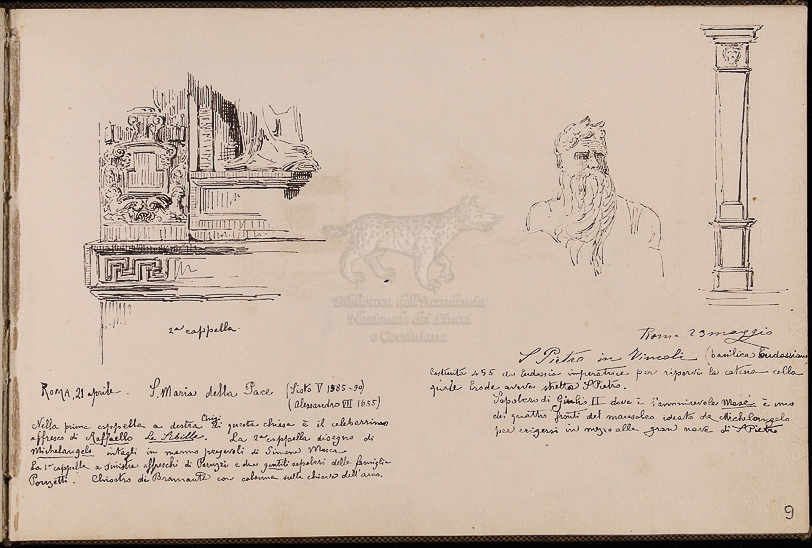 2ª cappella.
ROMA, 21 aprile. S. Maria della Pace (Sisto V 1585-90)
(Alessandro VII 1655)
Nella prima cappella a destra Chigi di questa chiesa è il celebratissimo
affresco di Raffaello Le Sibille. La 2ª cappella disegno di
Michelangelo intagli in marmo pregevoli di Simone Mosca
La 1ª cappella a sinistra affreschi di Peruzzi e due gentili sepolcri della famiglia
Ponzetti. Chiostro di Bramante con colonna sulla chiave dell'arco.
Roma 23 maggio
S. Pietro in Vincoli (basilica Eudossiana
Costruita 495 da Eudossia imperatrice per riporvi la catena colla
quale Erode aveva stretto S. Pietro.
Sepolcro di Giulio II dove è l'ammirevole Mosè è uno
dei quattro fronti del mausoleo ideato da Michelangelo
per erigersi in mezzo alla gran nave di S. Pietro
Biblioteca dell'Accademia
Nazionale dei Lincei
e Corsiniana
9